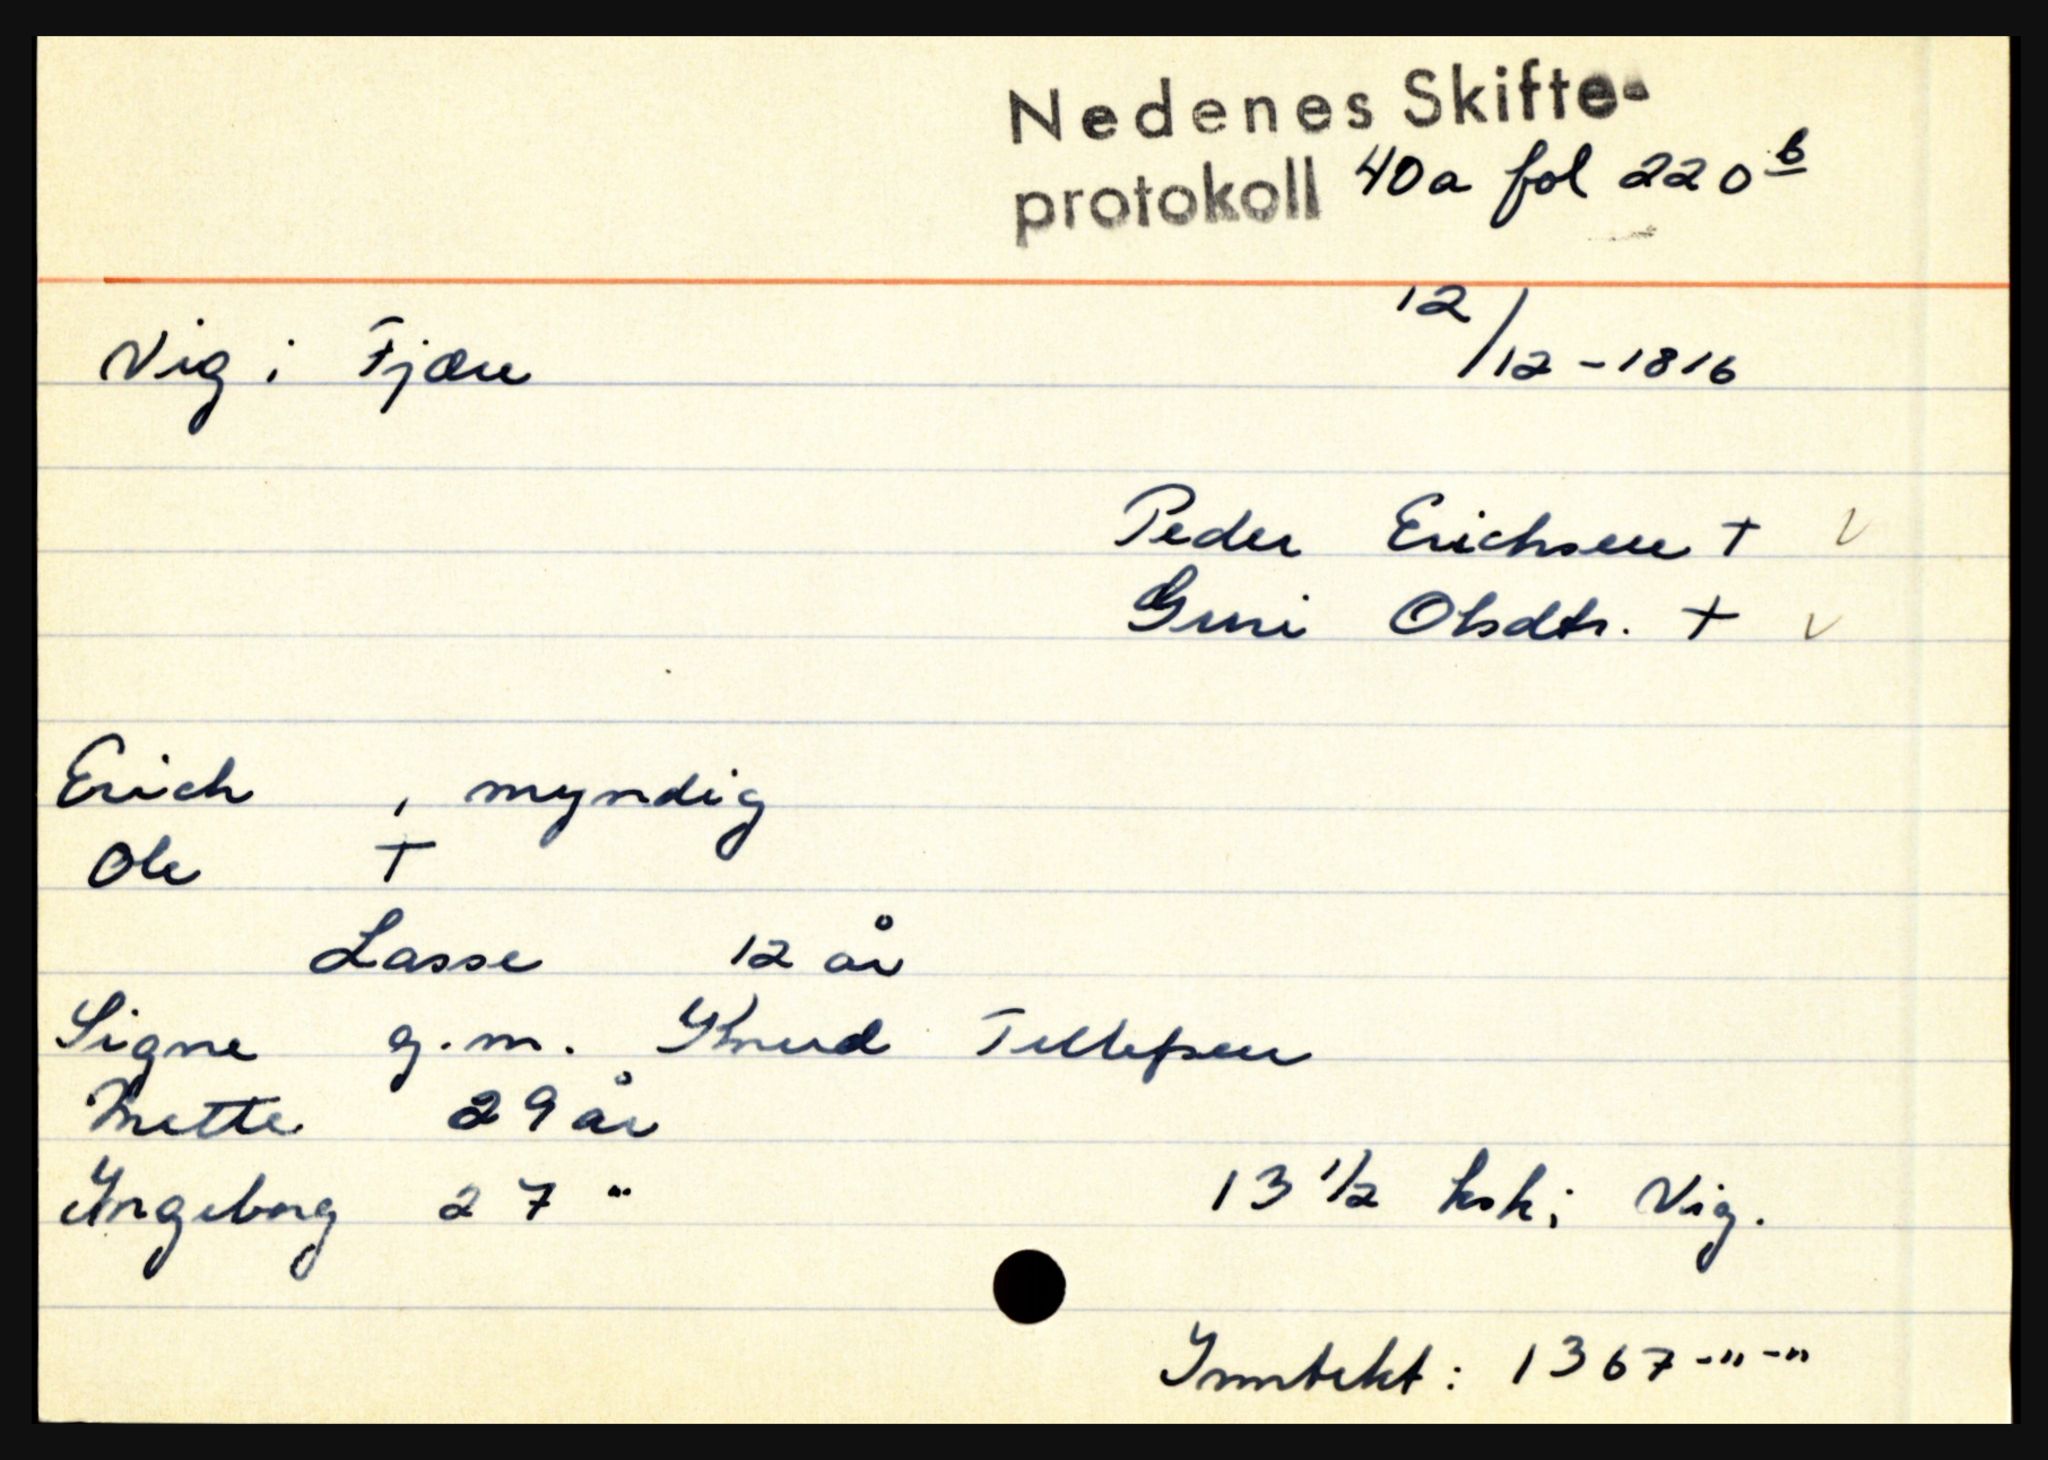 Nedenes Skifte-
protokoll 40a fol 220b
Vig i Fjære 12/12-1816
Peder Erichsen + v
Guni Olsdtr. + v
Erich , myndig
Ole +
Lasse 12 år
Signe g.m. Knud Tellefsen
Mette 29 år
Ingeborg 27 "
13 1/2 ksk i Vig.
Inntekt: 1367-"-"